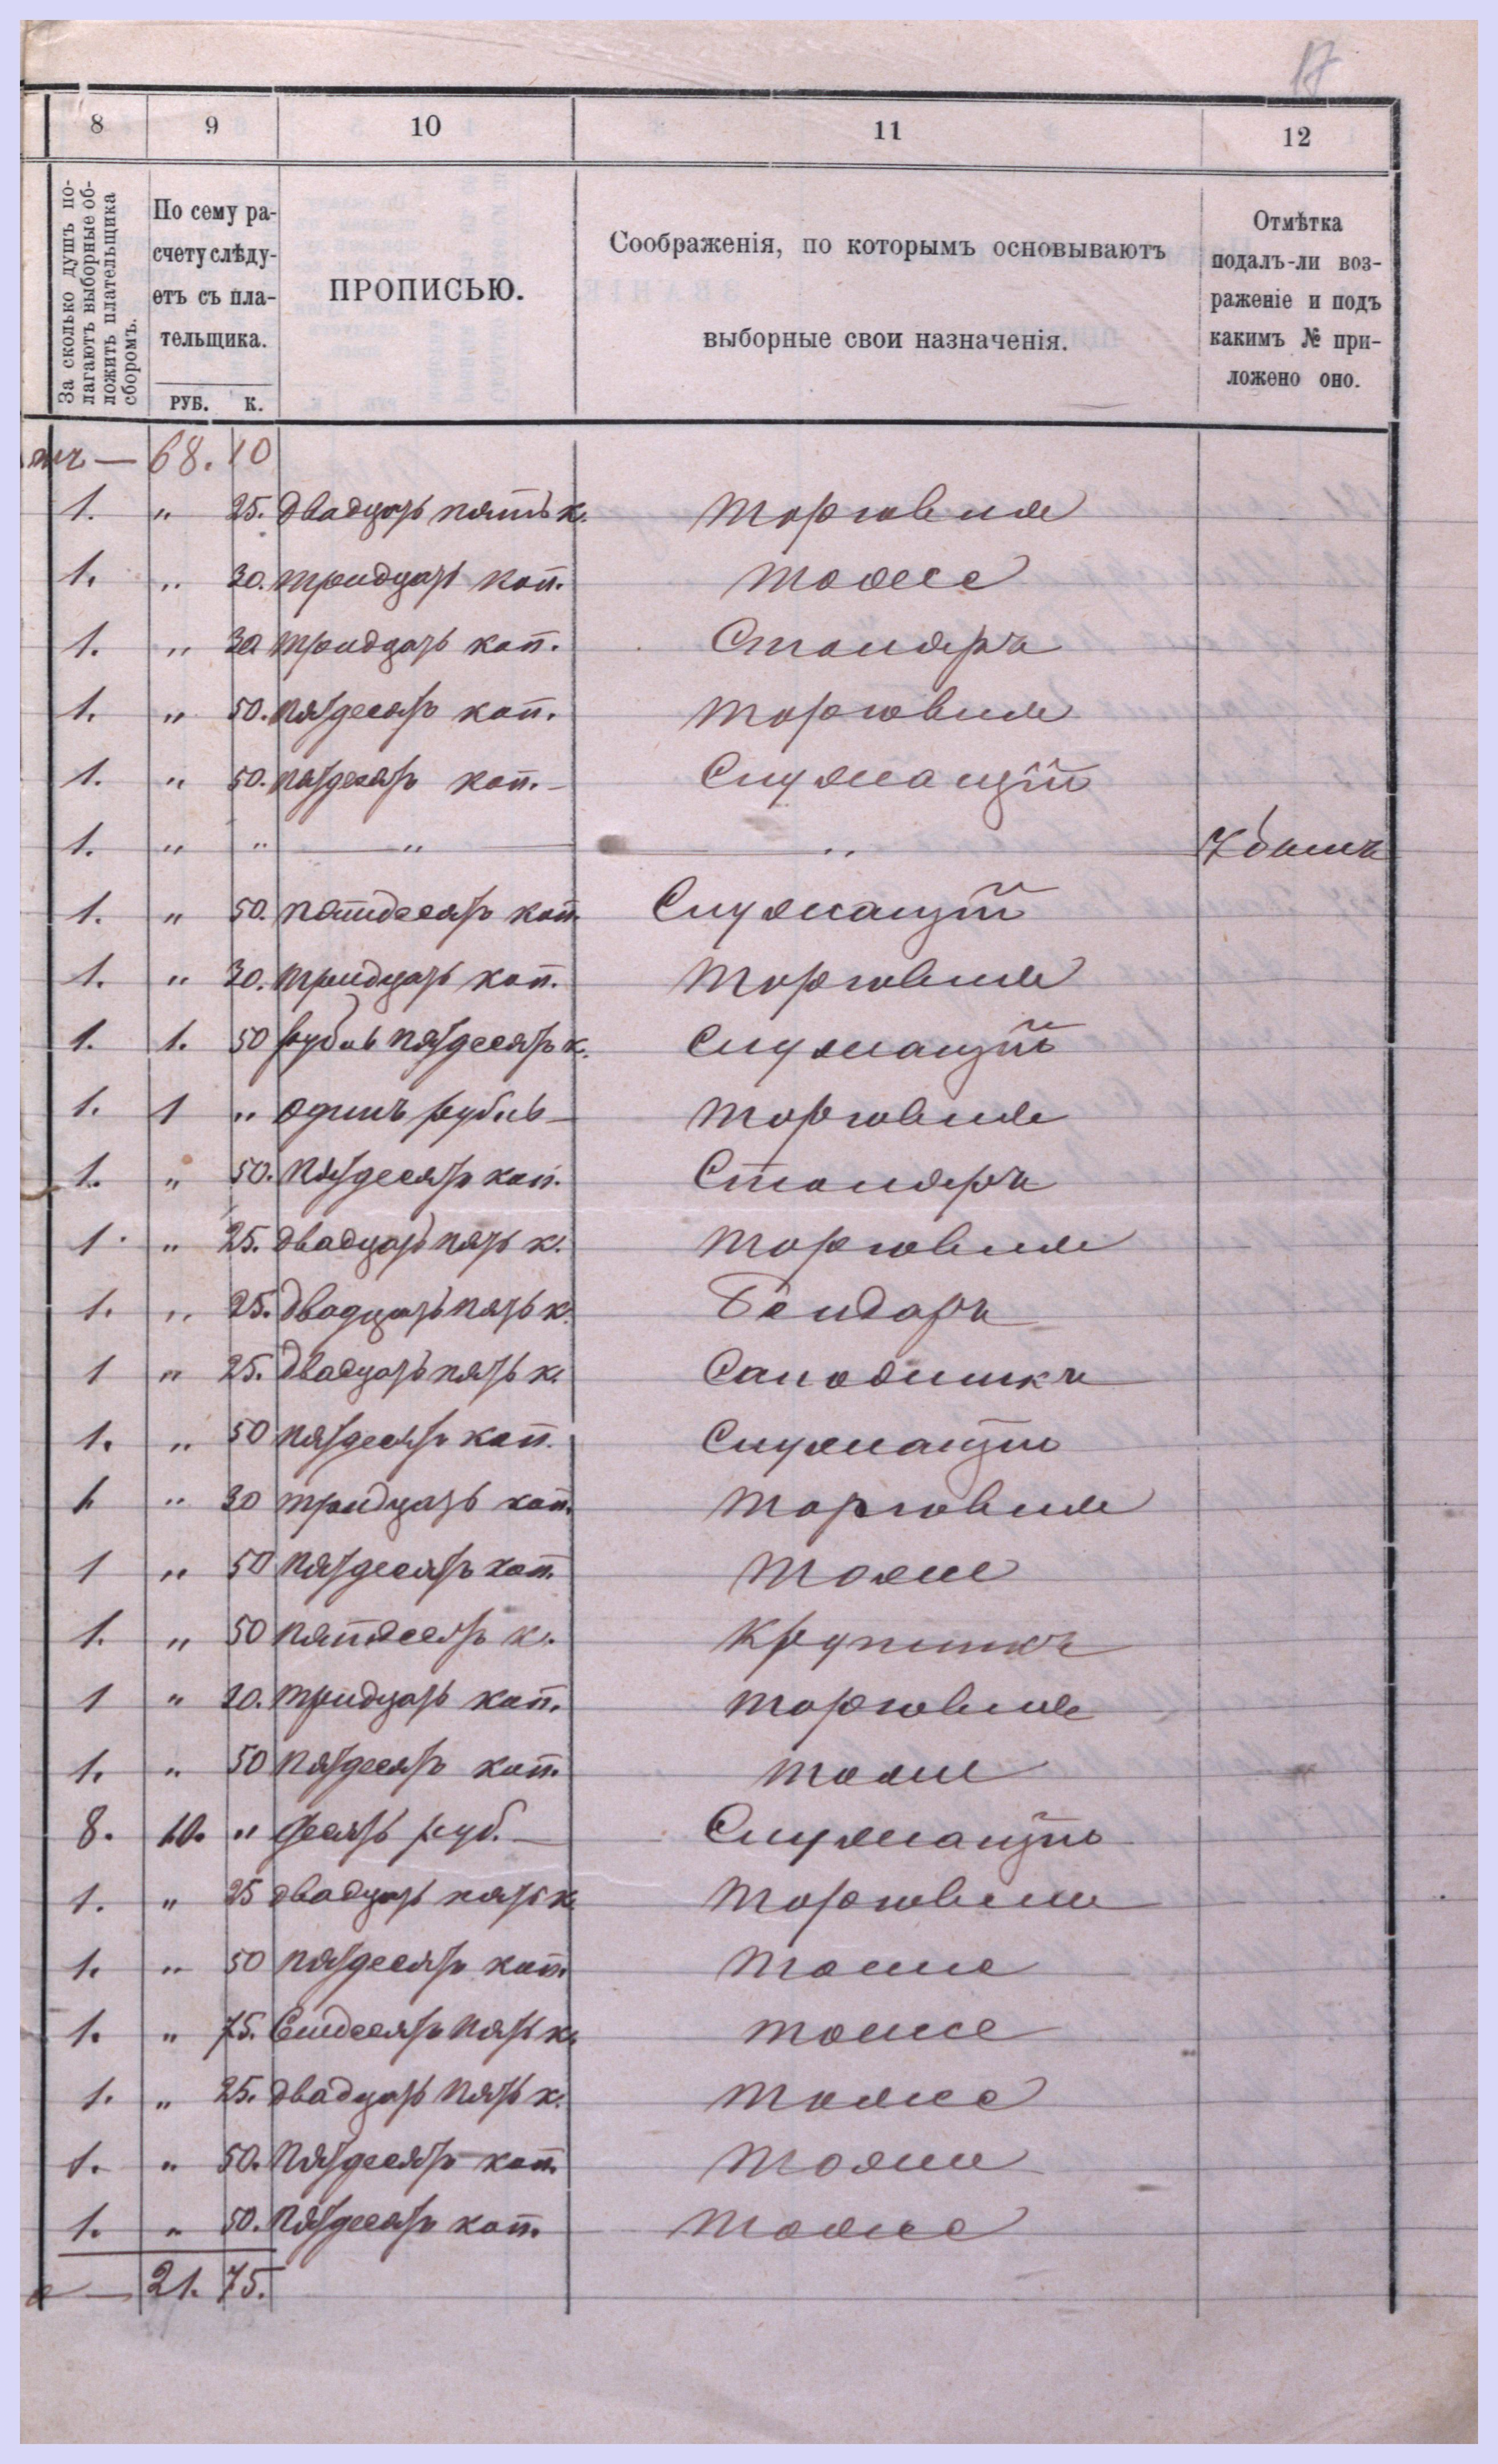 17
8 9 10 11 12
За сколько душъ по-
лагаютъ выборные об-
ложить плательщика
сборомъ.
По сему ра-
счету слѣду-
етъ съ пла-
тельщика.
РУБ. К.
ПРОПИСЬЮ.
Соображенія, по которымъ основываютъ
выборные свои назначенія.
Отмѣтка
подалъ-ли воз-
раженіе и подъ
какимъ № при-
ложено оно.
— 68. 10
1. " 25. двадцать пять к. торговля
1. " 30. тридцать коп. тоже
1. " 30 тридцать коп. Столяръ
1. " 50. пятдесятъ коп. торговля
1. " 50. пятдесятъ коп. — Служащій
1. " " — " — — " — Убылъ
1. " 50. пятдесятъ коп. Служащій
1. " 30. тридцать коп. торговля
1. 1. 50 рубль пятдесятъ к. служащій
1. 1 " одинъ рубль — торговля
1. " 50. пятдесятъ коп. Столяръ
1. " 25. двадцать пять к. торговля
1. " 25. двадцать пять к. Бондаръ
1 " 25. двадцать пять к. Сапожникъ
1. " 50 пятдесятъ коп. Служащій
1. " 30 тридцать коп. торговля
1 " 50 пятдесятъ коп. тоже
1. " 50 пятдесятъ к. крупникъ
1 " 30. тридцать коп. торговля
1. " 50 пятдесятъ коп. тоже
8. 10. " десять руб. — Служащій
1. " 25 двадцать пять к. торговля
1. " 50 пятдесятъ коп. тоже
1. " 75. Семдесятъ пять к. тоже
1. " 25. двадцать пять к. тоже
1. " 50. пятдесятъ коп. тоже
1. " 50. пятдесятъ коп. тоже
— 21. 75.